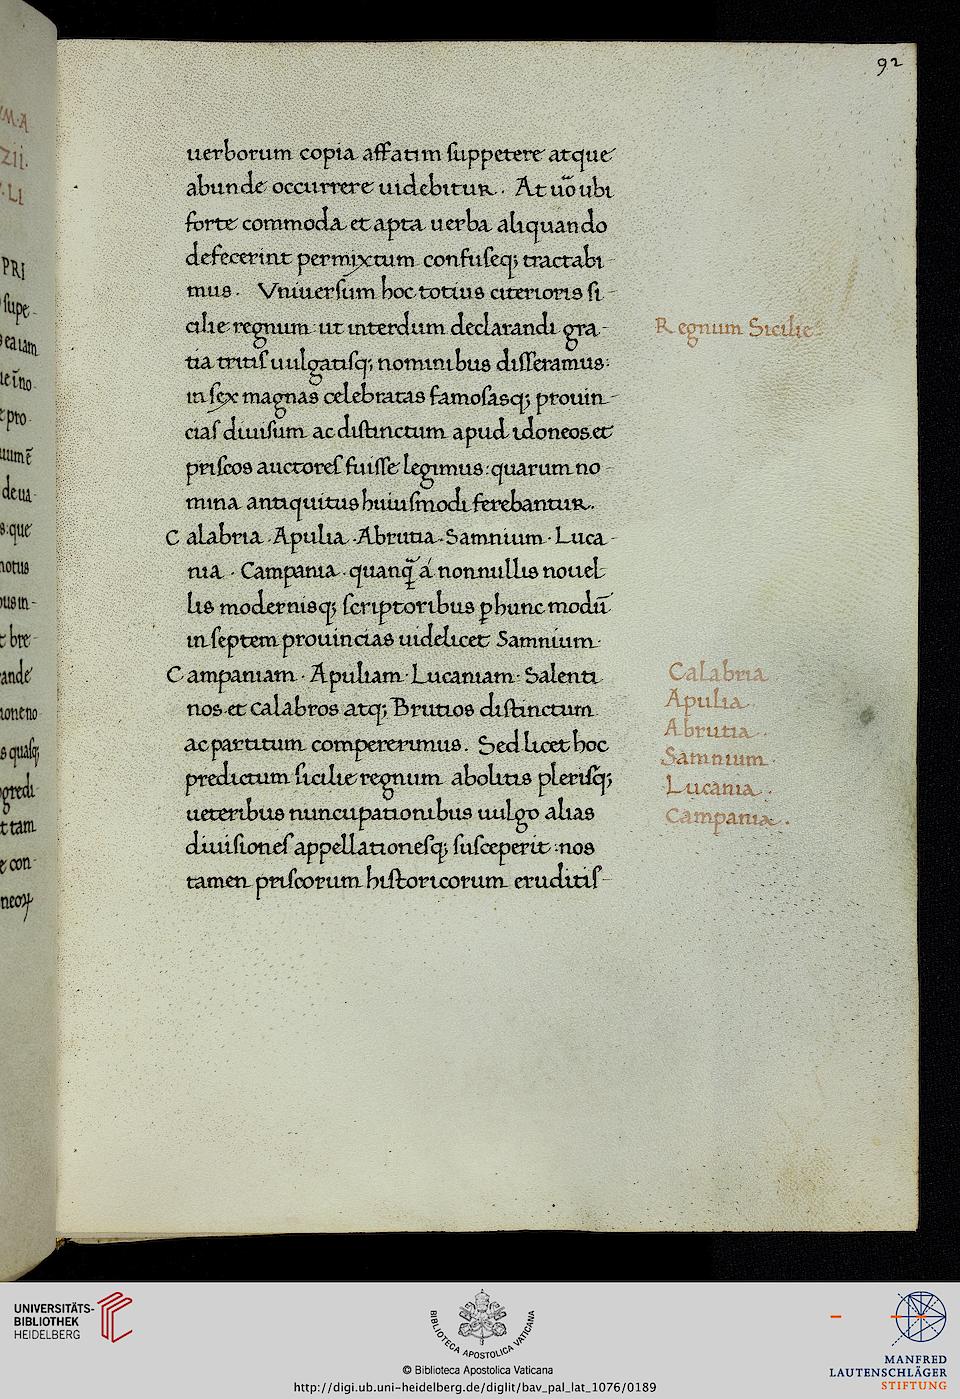 92
uerborum copia affatim suppetere atque
abunde occurrere uidebitur. At uo ubi
forte commoda et apta uerba aliquando
defecerint permixtum confuseq; tractabi-
mus. Vniuersum hoc totius citerioris si-
cilie regnum ut interdum declarandi gra-
tia tritis uulgatisq; nominibus disseramus:
in sex magnas celebratas famosasq; prouin-
cias diuisum ac distinctum apud idoneos et
priscos auctores fuisse legimus: quarum no-
mina antiquitus huiusmodi ferebantur.
Calabria. Apulia. Abrutia. Samnium. Luca-
nia. Campania. quanq̃ á nonnullis nouel-
lis modernisq; scriptoribus ꝑ hunc modū
in septem prouincias uidelicet Samnium.
Campaniam. Apuliam. Lucaniam. Salenti
nos et calabros atq; Brutios distinctum
ac partitum compererimus. Sed licet hoc
predictum sicilie regnum abolitis plerisq;
ueteribus nuncupationibus uulgo alias
diuisiones appellationesq; susceperit: nos
tamen priscorum historicorum eruditis-
Regnum Sicilie
Calabria
Apulia.
Abrutia.
Samnium.
Lucania.
Campania.
UNIVERSITÄTS-
BIBLIOTHEK
HEIDELBERG
BIBLIOTECA APOSTOLICA VATICANA
© Biblioteca Apostolica Vaticana
http://digi.ub.uni-heidelberg.de/diglit/bav_pal_lat_1076/0189
MANFRED
LAUTENSCHLÄGER
STIFTUNG